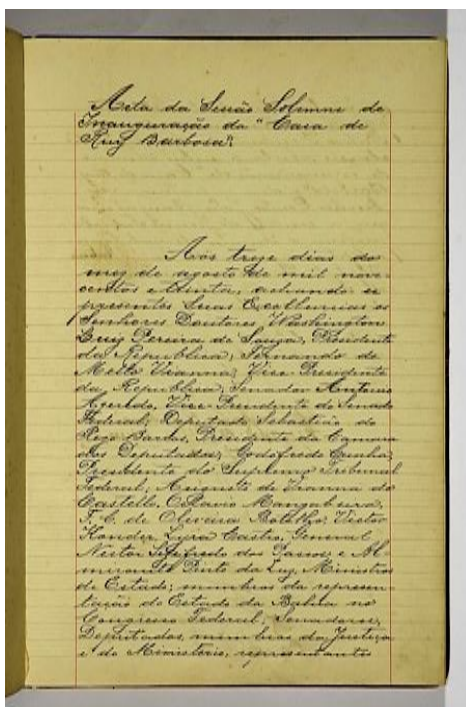 Acta da Sessão Solemne de
Inauguração da "Casa de
Ruy Barbosa".
Aos treze dias do
mez de agosto de mil nove-
centos e trinta, achando-se
presentes Suas Excellencias os
Senhores Doutores Washington
Luiz Pereira de Souza, Presidente
da Republica, Fernando de
Mello Vianna, Vice Presidente
da Republica, Senador Antonio
Azeredo, Vice-Presidente do Senado
Federal, Deputado Sebastião do
Rego Barros, Presidente da Camara
dos Deputados, Godofredo Cunha,
Presidente do Supremo Tribunal
Federal, Augusto de Vianna do
Castello, Octavio Mangabeira,
F. C. de Oliveira Botelho, Victor
Konder, Lyra Castro, General
Nestor Sezefredo dos Passos e Al-
mirante Pinto da Luz, Ministros
de Estado; membros da represen-
tação do Estado da Bahia no
Congresso Federal, Senadores,
Deputados, membros da Justiça
e do Ministerio, representantes